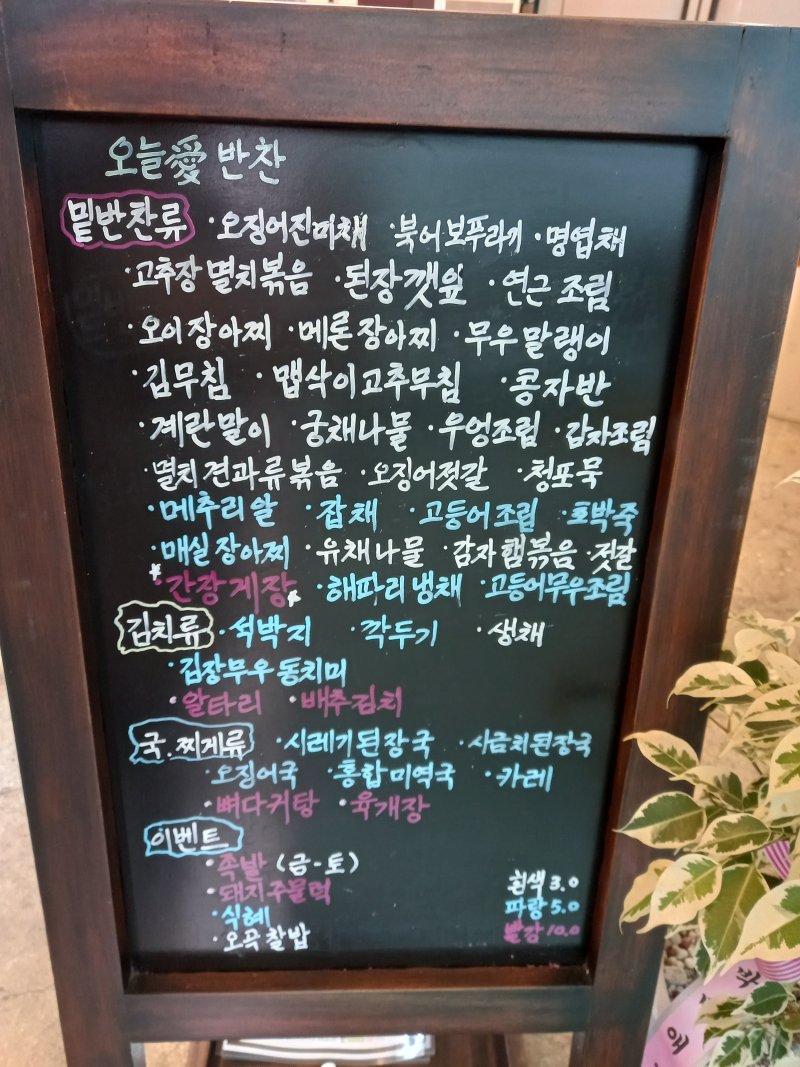 오늘愛 반찬
밑반찬류 ·오징어진미채 ·북어보푸라기 ·명엽채
·고추장 멸치볶음 ·된장깻잎 ·연근조림
·오이장아찌 ·메론장아찌 ·무우말랭이
·김무침 ·맵삭이고추무침 ·콩자반
·계란말이 ·궁채나물 ·우엉조림 ·감자조림
·멸치견과류볶음 ·오징어젓갈 ·청포묵
·메추리알 ·잡채 ·고등어조림 ·호박죽
·매실장아찌 ·유채나물 ·감자햄볶음 ·젓갈
·간장게장 ·해파리냉채 ·고등어무우조림
김치류 ·석박지 ·깍두기 ·생채
·김장무우동치미
·알타리 ·배추김치
국.찌게류 ·시레기된장국 ·시금치된장국
·오징어국 ·홍합미역국 ·카레
·뼈다귀탕 ·육개장
이벤트
·족발 (금-토)
·돼지주물럭
·식혜
·오곡찰밥
흰색 3.0
파랑 5.0
빨강 10.0